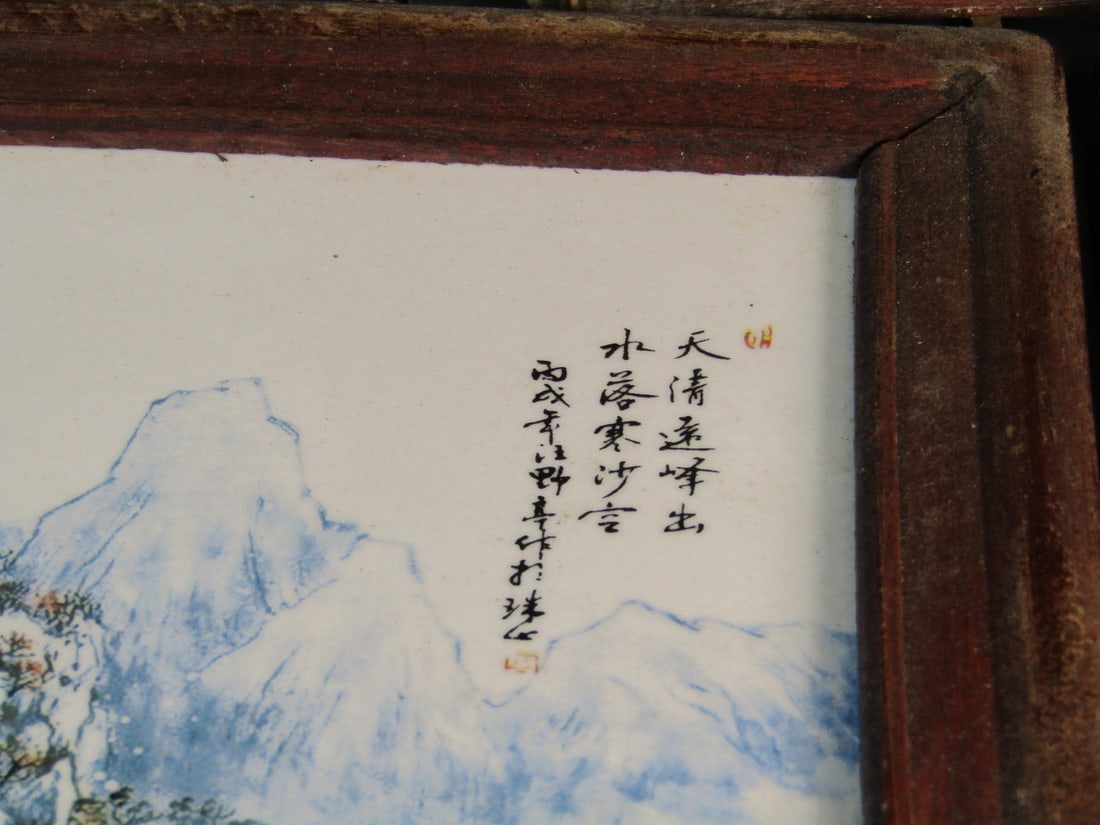 天清遠峰出
水落寒沙空
丙戌年汪野亭作於珠山